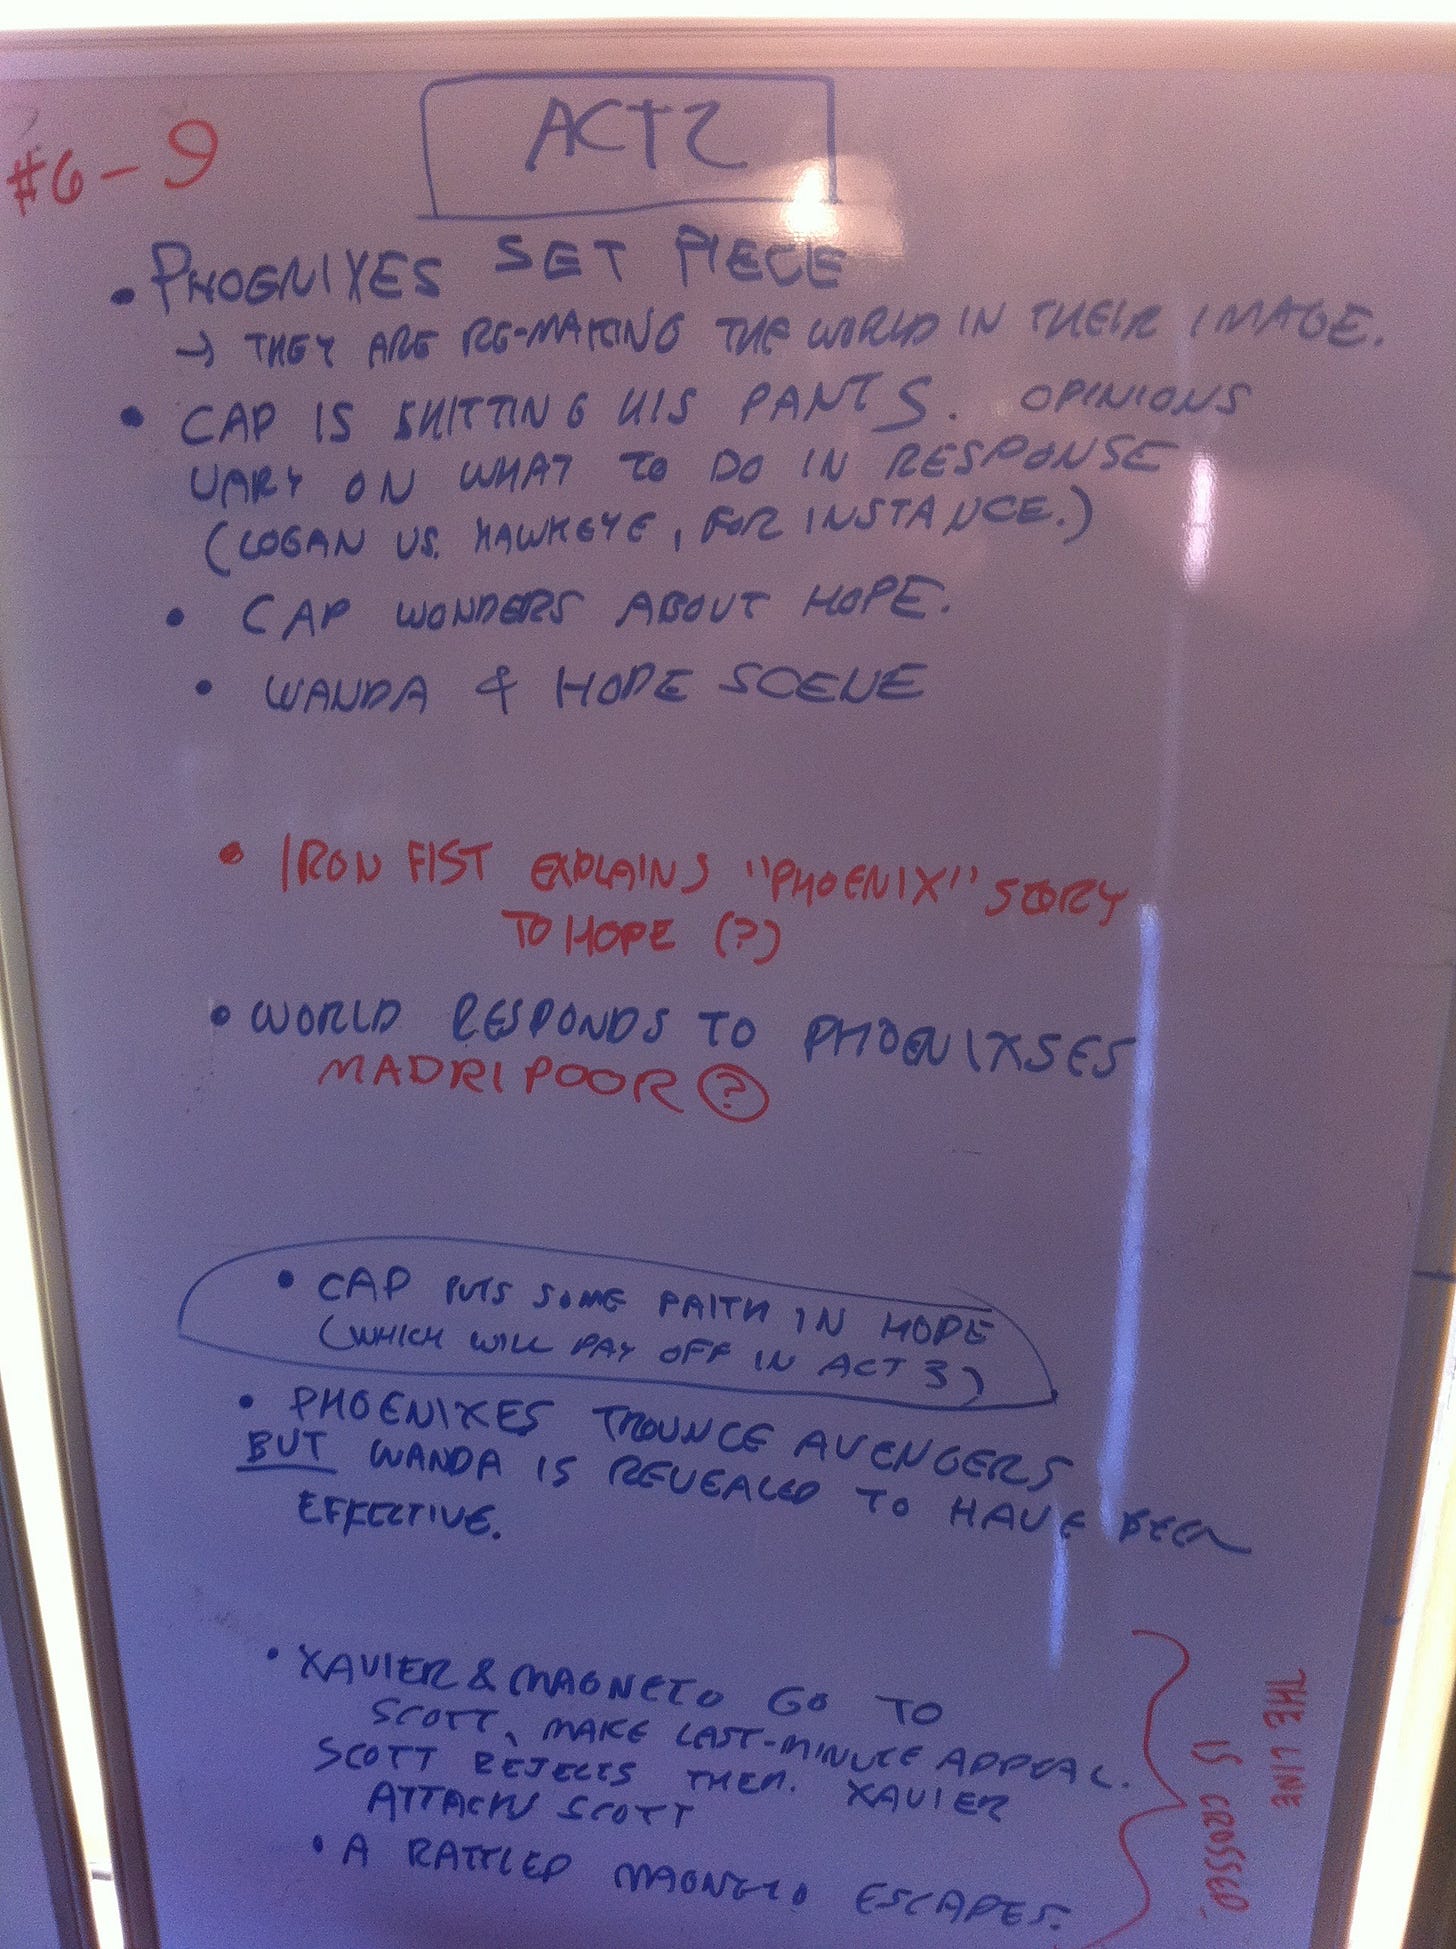 #6-9
ACT 2
• PHOENIXES SET PIECE
→ THEY ARE RE-MAKING THE WORLD IN THEIR IMAGE.
• CAP IS SHITTING HIS PANTS. OPINIONS
VARY ON WHAT TO DO IN RESPONSE
(LOGAN VS. HAWKEYE, FOR INSTANCE.)
• CAP WONDERS ABOUT HOPE.
• WANDA & HOPE SCENE
• IRON FIST EXPLAINS "PHOENIX" STORY
TO HOPE (?)
• WORLD RESPONDS TO PHOENIXSES
MADRIPOOR ?
• CAP PUTS SOME FAITH IN HOPE
(WHICH WILL PAY OFF IN ACT 3)
• PHOENIXES TROUNCE AVENGERS
BUT WANDA IS REVEALED TO HAVE BEEN
EFFECTIVE.
• XAVIER & MAGNETO GO TO
SCOTT, MAKE LAST-MINUTE APPEAL.
SCOTT REJECTS THEM. XAVIER
ATTACKS SCOTT
• A RATTLED MAGNETO ESCAPES.
THE LINE
IS CROSSED.